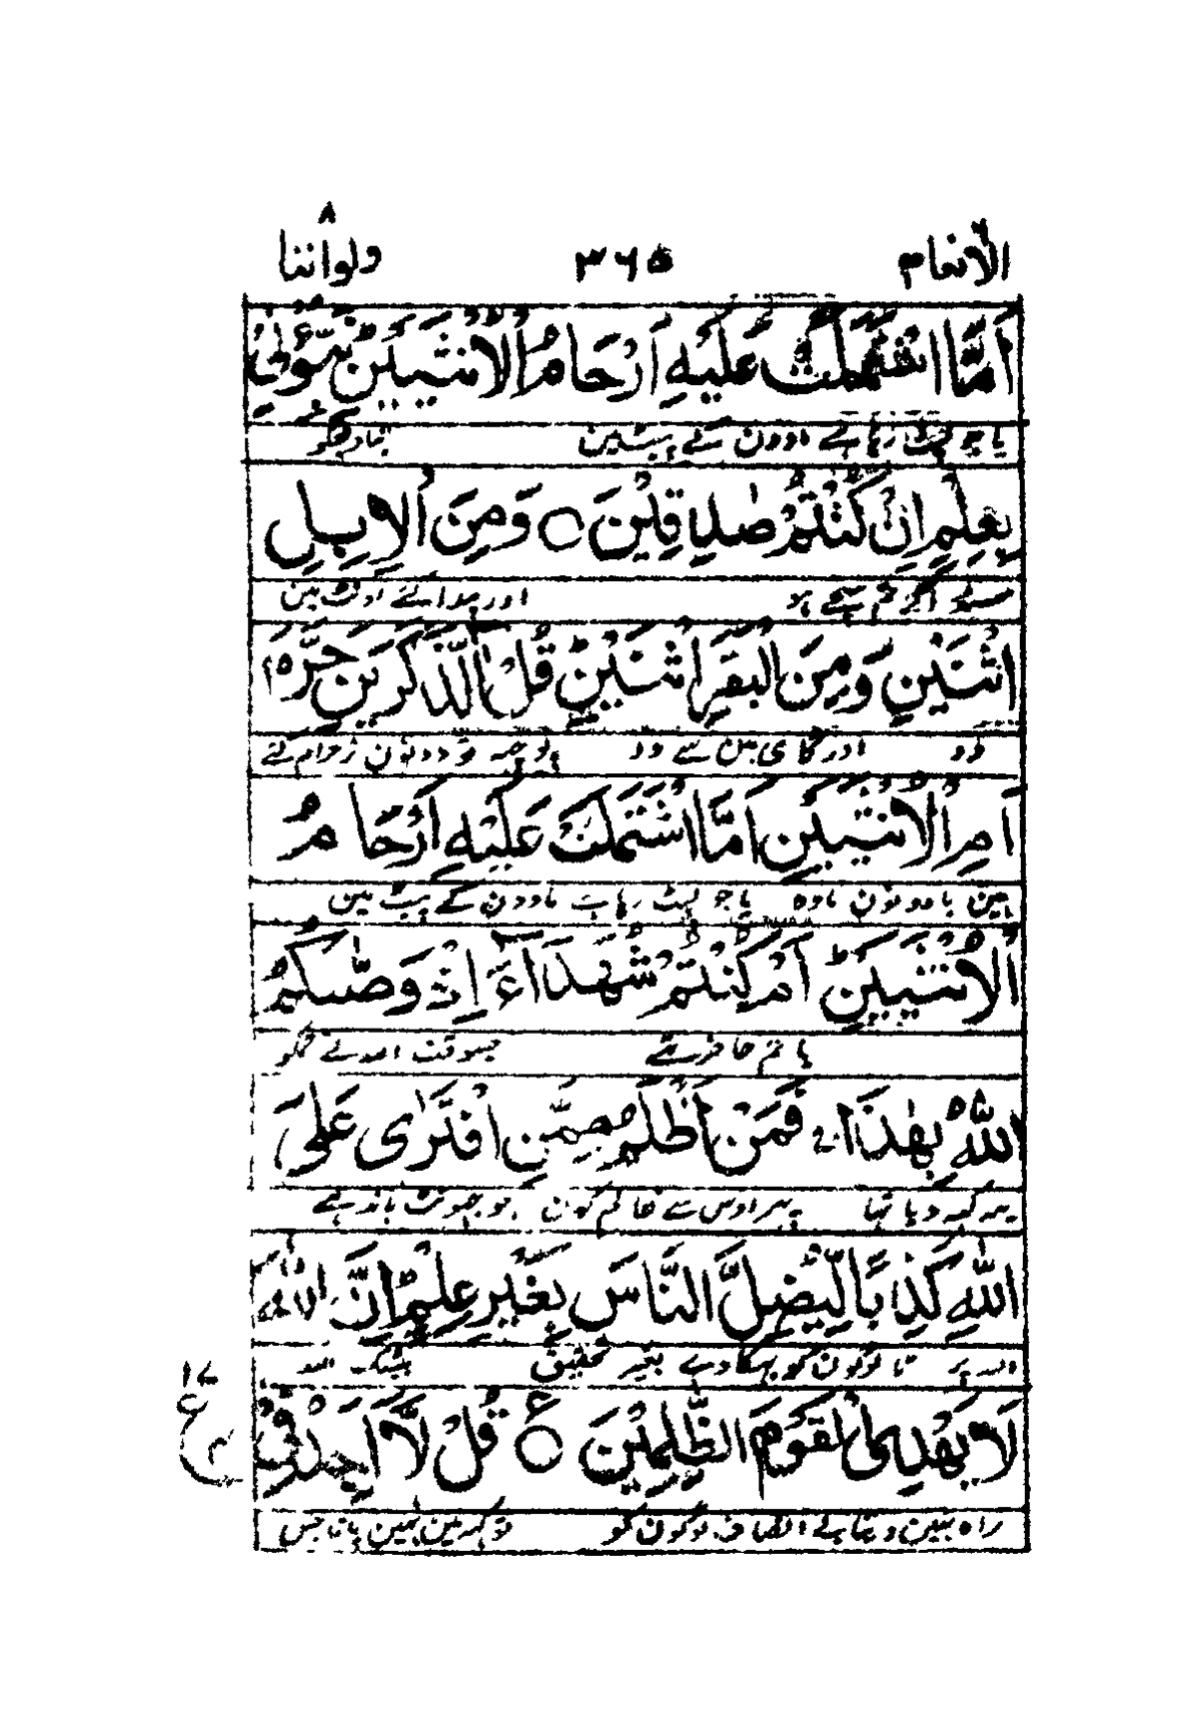 الانعام ٦ ٣٦٥ ولواننا ٨
اَمَّا اشْتَمَلَتْ عَلَيْهِ اَرْحَامُ الْاُنْثَيَيْنِ ؕ نَبِّـُٔوْنِيْ
یا جو لپٹ رہا ہے مادون کے پیٹ مین بتادو مجکو
بِعِلْمٍ اِنْ كُنْتُمْ صٰدِقِيْنَ ○ وَمِنَ الْاِبِلِ
اگر تم سچے ہو اور پیدا کئے اونٹ مین
اثْنَيْنِ وَمِنَ الْبَقَرِ اثْنَيْنِ ؕ قُلْ ءٰٓالذَّكَرَيْنِ حَرَّمَ
دو اور گای مین سے دو پوچھہ تو دونون نر حرام کئے
اَمِ الْاُنْثَيَيْنِ اَمَّا اشْتَمَلَتْ عَلَيْهِ اَرْحَامُ
ہین یا دونون مادہ یا جو لپٹ رہا ہے مادون کے پیٹ مین
الْاُنْثَيَيْنِ ؕ اَمْ كُنْتُمْ شُهَدَآءَ اِذْ وَصّٰىكُمُ
یا تم حاضر تھے جسوقت اللہ نے تمکو
اللّٰهُ بِهٰذَا ۚ فَمَنْ اَظْلَمُ مِمَّنِ افْتَرٰى عَلَى
یہ کہہ دیا تہا پہر اوس سے ظالم کون جو جہوٹ باندہے
اللّٰهِ كَذِبًا لِّيُضِلَّ النَّاسَ بِغَيْرِ عِلْمٍ ؕ اِنَّ اللّٰهَ
اللہ پر تا لوگون کو بہکاوے بغیر تحقیق بیشک اللہ
لَا يَهْدِى الْقَوْمَ الظّٰلِمِيْنَ ○ ع قُلْ لَّآ اَجِدُ فِيْ
١٧ ع ٤
راہ نہین دیتا بے انصاف لوگون کو تو کہہ مین نہین پاتا جس